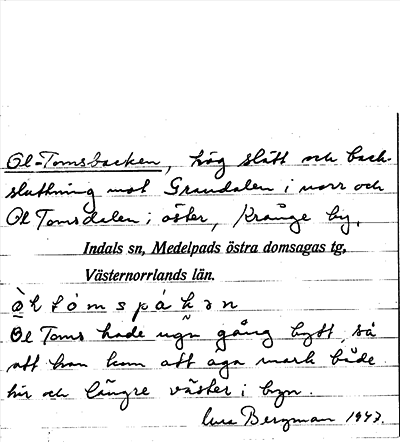 Ol-Tomsbacken, hög slätt och back-
sluttning mot Grandalen i norr och
Ol Tomsdalen i öster, Krånge by,
Indals sn, Medelpads östra domsagas tg,
Västernorrlands län.
Ol Toms hade ngn gång bytt, så
att han kom att äga mark både
här och längre väster i byn.
Bergman 1947.